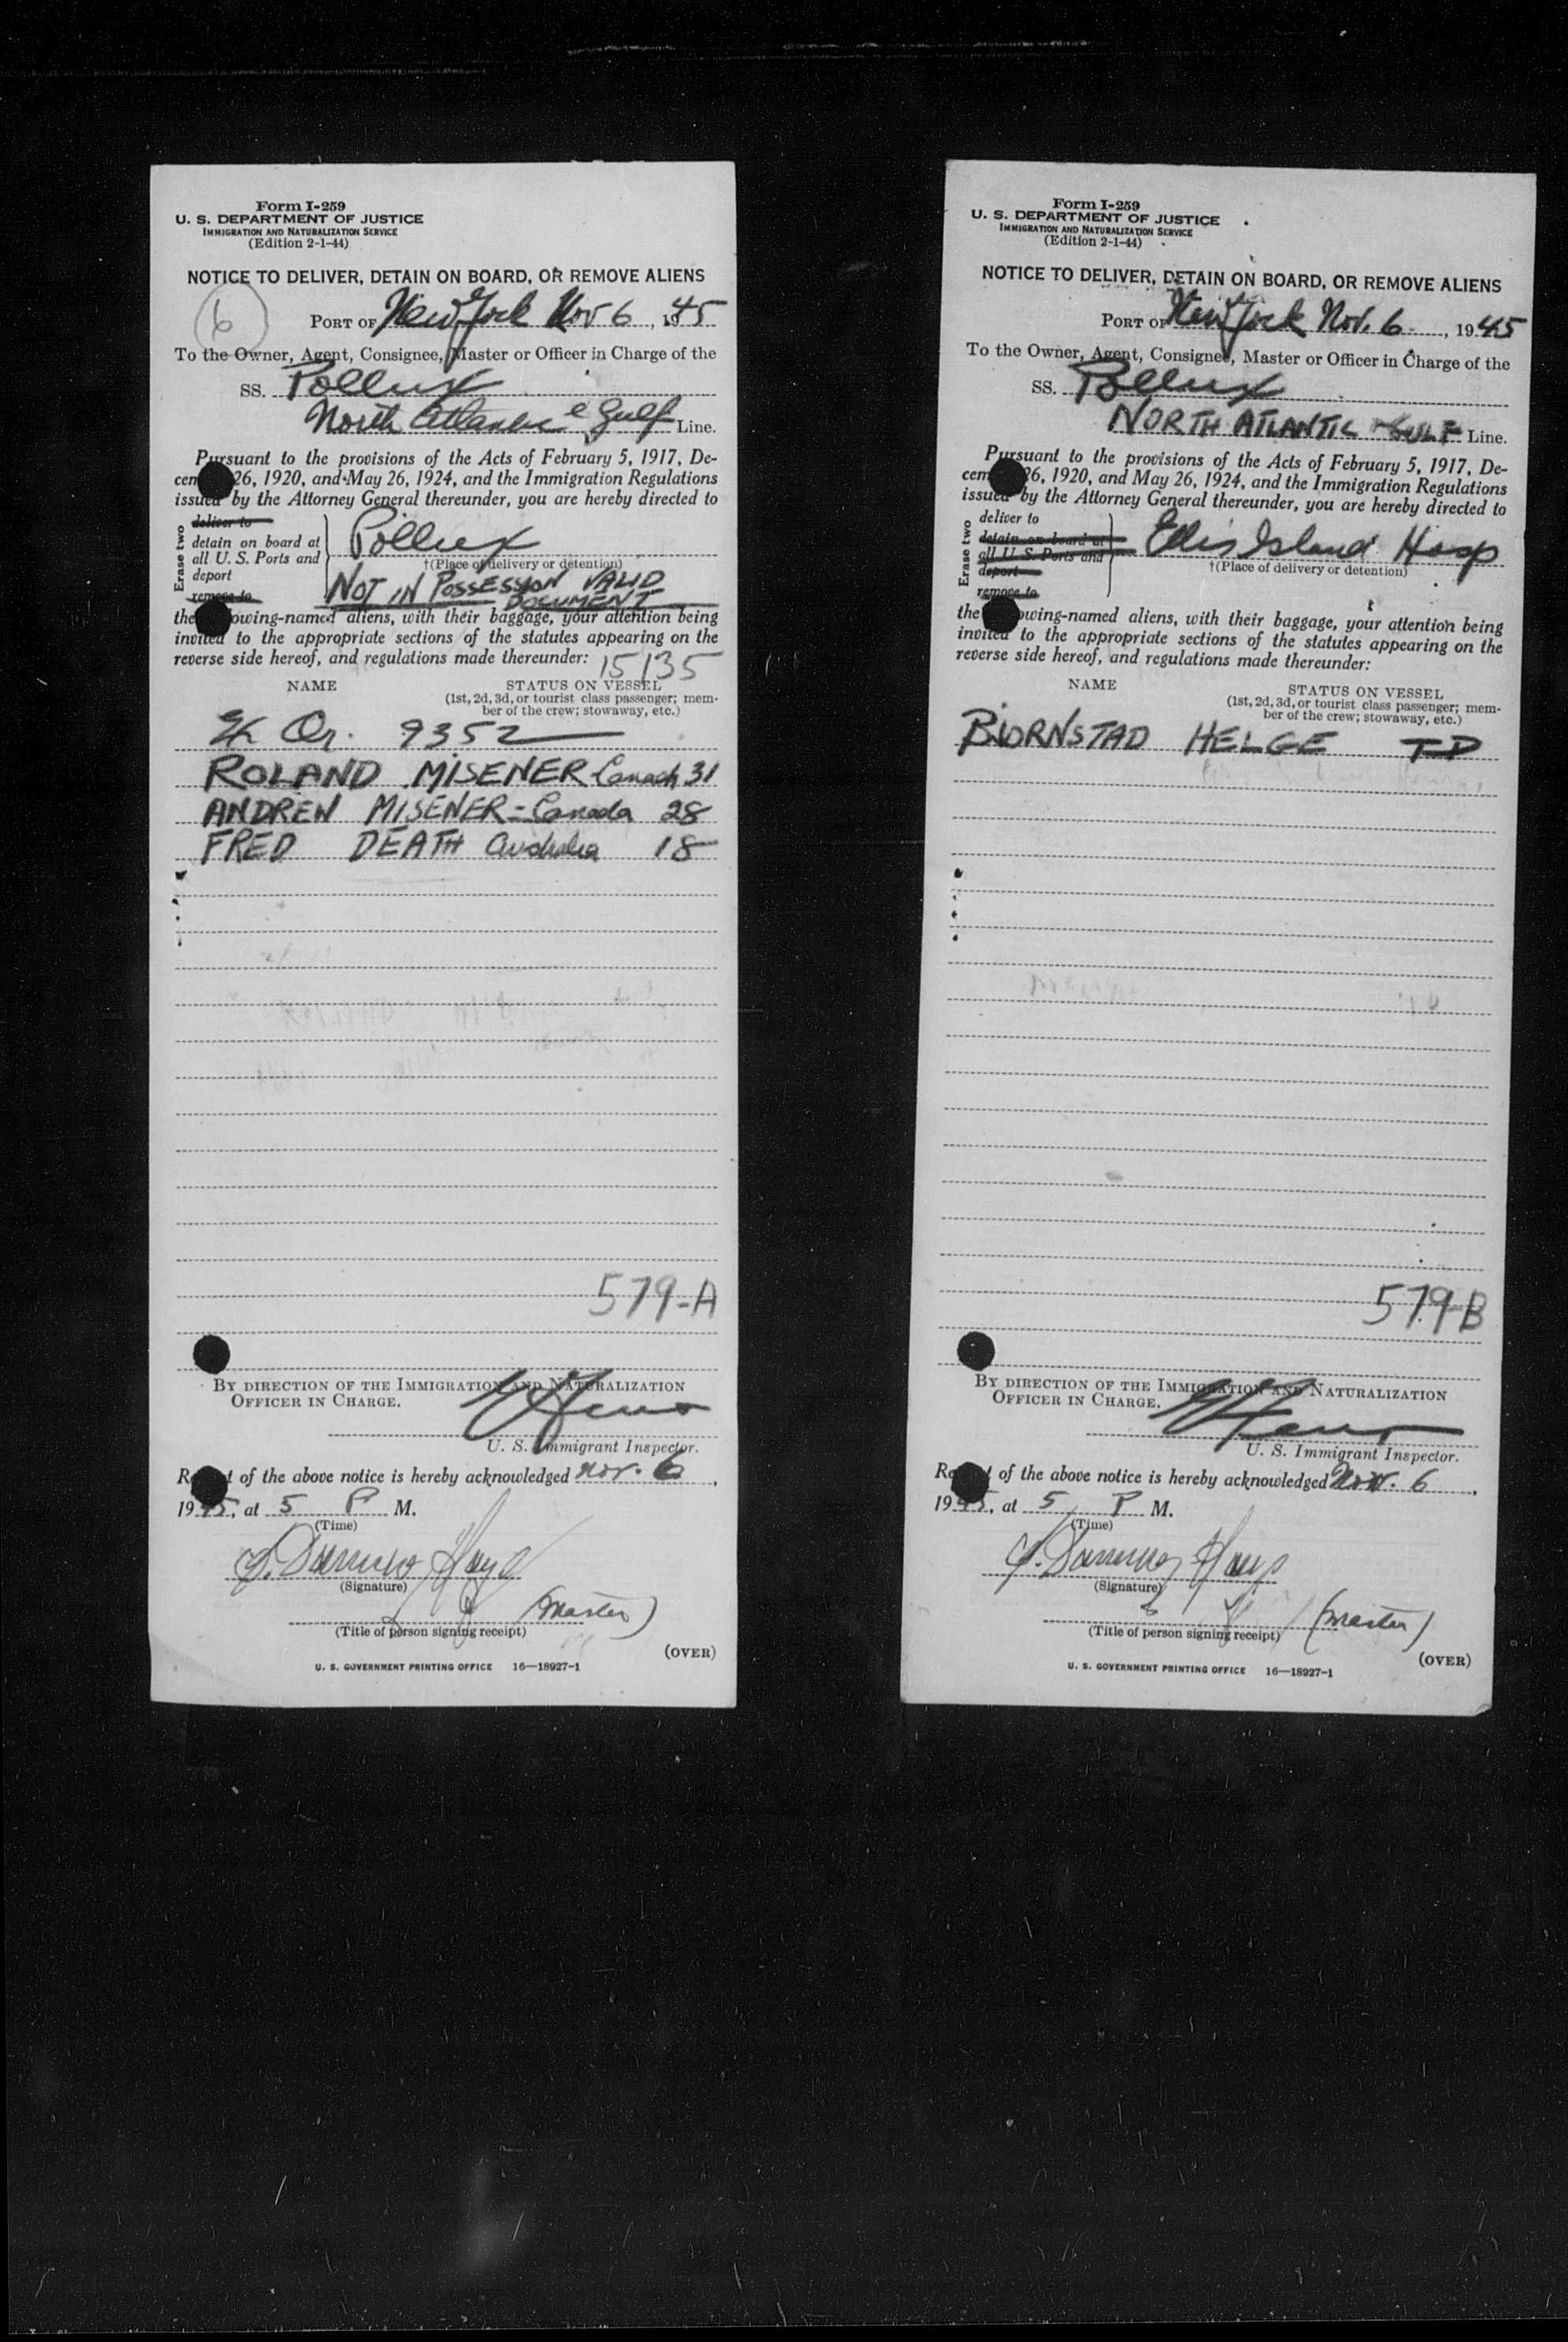 Form I-259
U. S. DEPARTMENT OF JUSTICE
IMMIGRATION AND NATURALIZATION SERVICE
(Edition 2-1-44)
NOTICE TO DELIVER, DETAIN ON BOARD, OR REMOVE ALIENS
6
PORT OF New York Nov 6, 1945
To the Owner, Agent, Consignee, Master or Officer in Charge of the
SS. Pollux
North Atlantic & Gulf Line.
Pursuant to the provisions of the Acts of February 5, 1917, De-
cem 26, 1920, and May 26, 1924, and the Immigration Regulations
issued by the Attorney General thereunder, you are hereby directed to
Erase two
deliver to
detain on board at
all U. S. Ports and
deport
remove to
Pollux
†(Place of delivery or detention)
NOT IN POSSESSION VALID
DOCUMENT
the owing-named aliens, with their baggage, your attention being
invited to the appropriate sections of the statutes appearing on the
reverse side hereof, and regulations made thereunder: 15135
NAME STATUS ON VESSEL
(1st, 2d, 3d, or tourist class passenger; mem-
ber of the crew; stowaway, etc.)
Ex Or. 9352
ROLAND MISENER - Canada 31
ANDREN MISENER - Canada 28
FRED DEATH Australia 18
579-A
BY DIRECTION OF THE IMMIGRATION AND NATURALIZATION
OFFICER IN CHARGE.
U. S. Immigrant Inspector.
Re t of the above notice is hereby acknowledged Nov. 6,
1945, at 5 P M.
(Time)
(Signature)
(Master)
(Title of person signing receipt)
(OVER)
U. S. GOVERNMENT PRINTING OFFICE 16—18927-1
Form I-259
U. S. DEPARTMENT OF JUSTICE
IMMIGRATION AND NATURALIZATION SERVICE
(Edition 2-1-44)
NOTICE TO DELIVER, DETAIN ON BOARD, OR REMOVE ALIENS
PORT OF New York Nov. 6, 1945
To the Owner, Agent, Consignee, Master or Officer in Charge of the
SS. Pollux
NORTH ATLANTIC GULF Line.
Pursuant to the provisions of the Acts of February 5, 1917, De-
cem 26, 1920, and May 26, 1924, and the Immigration Regulations
issued by the Attorney General thereunder, you are hereby directed to
Erase two
deliver to
detain on board at
all U. S. Ports and
deport
remove to
Ellis Island Hosp
†(Place of delivery or detention)
the owing-named aliens, with their baggage, your attention being
invited to the appropriate sections of the statutes appearing on the
reverse side hereof, and regulations made thereunder:
NAME STATUS ON VESSEL
(1st, 2d, 3d, or tourist class passenger; mem-
ber of the crew; stowaway, etc.)
BJORNSTAD HELGE TD
579-B
BY DIRECTION OF THE IMMIGRATION AND NATURALIZATION
OFFICER IN CHARGE.
U. S. Immigrant Inspector.
Re t of the above notice is hereby acknowledged Nov. 6,
1945, at 5 P M.
(Time)
(Signature)
(Master)
(Title of person signing receipt)
(OVER)
U. S. GOVERNMENT PRINTING OFFICE 16—18927-1